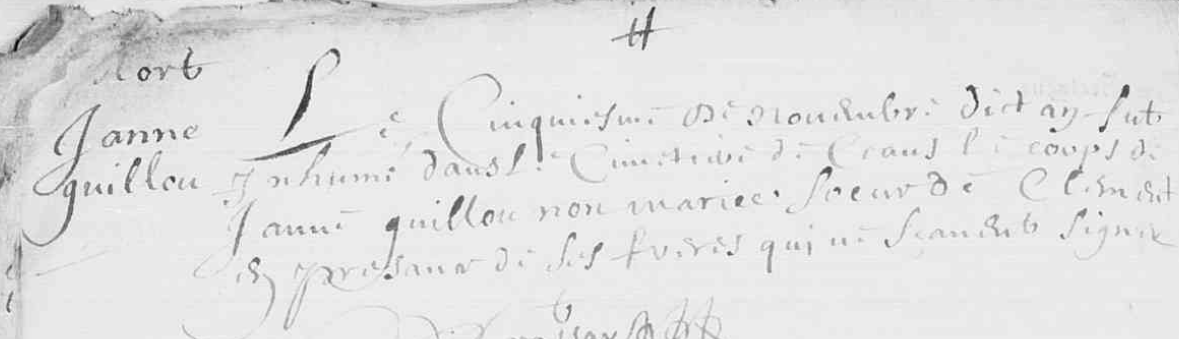 Mort
Janne
guillou
Le Cinquiesme de nouembre dict an fut
Inhumé dans le Cimetiere de Ceans le corps de
Janne guillou non mariee soeur de Clement
en presance de ses freres qui ne sçauent signer